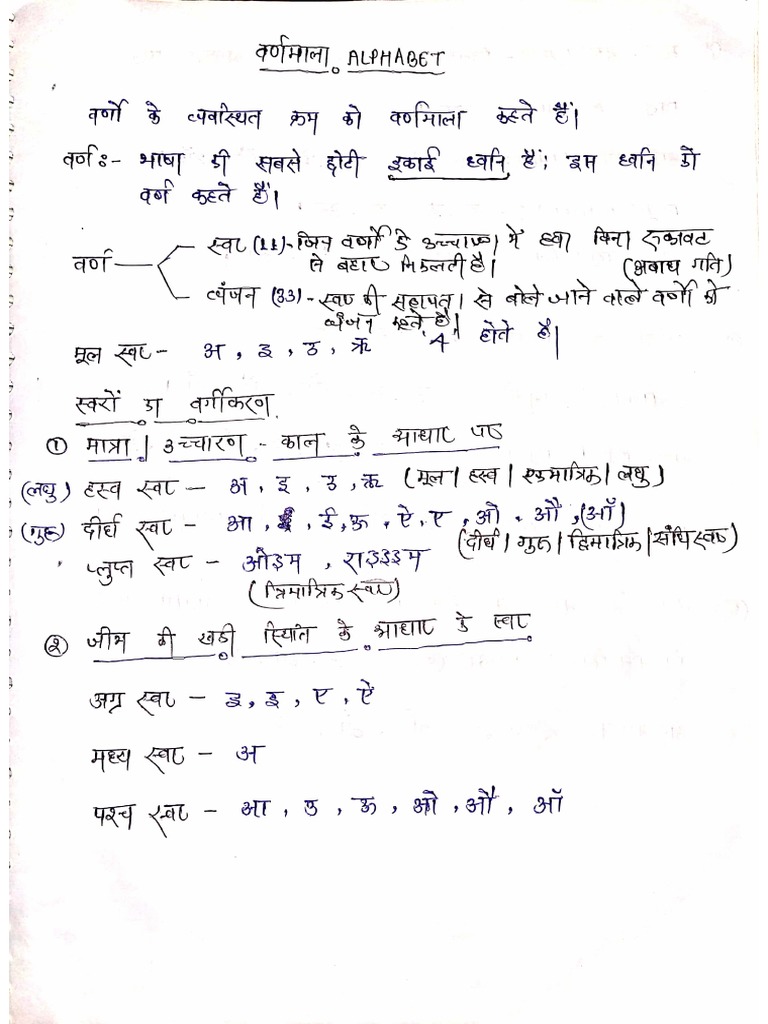 वर्णमाला ALPHABET
वर्णों के व्यवस्थित क्रम को वर्णमाला कहते हैं।
वर्णः- भाषा की सबसे छोटी इकाई ध्वनि है; इस ध्वनि को
वर्ण कहते हैं।
वर्ण
स्वर (11)- जिन वर्णों के उच्चारण में हवा बिना रुकावट
से बाहर निकलती है। (अबाध गति)
व्यंजन (33)- स्वर की सहायता से बोले जाने वाले वर्णों को
व्यंजन कहते हैं।
मूल स्वर - अ, इ, उ, ऋ 4 होते है।
स्वरों का वर्गीकरण
① मात्रा / उच्चारण - काल के आधार पर
(लघु) ह्रस्व स्वर - अ, इ, उ, ऋ (मूल / ह्रस्व / एकमात्रिक / लघु)
(गुरु) दीर्घ स्वर - आ, ई, ऊ, ऐ, ए, ओ, औ, (ऑ)
(दीर्घ / गुरु / द्विमात्रिक / संधि स्वर)
प्लुप्त स्वर - ओइम, राइइइम
(त्रिमात्रिक स्वर)
② जीभ की खड़ी स्थिति के आधार के स्वर
अग्र स्वर - इ, ई, ए, ऐ
मध्य स्वर - अ
पश्च स्वर - आ, उ, ऊ, ओ, औ, ऑ